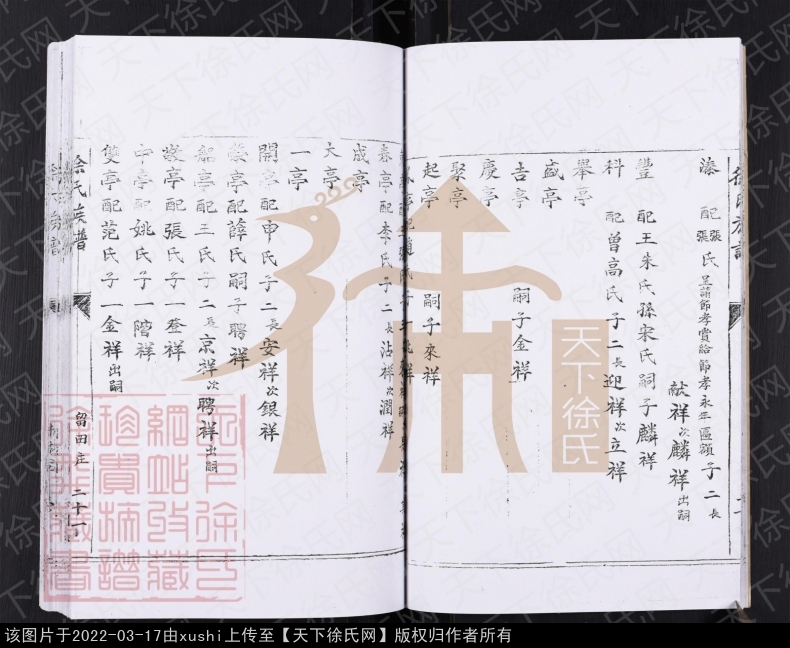 溱 配張張氏 呈請節孝賞給節孝永年匾額 子二長
獻祥次麟祥出嗣
豐 配王朱氏孫宋氏嗣子麟祥
科 配曾高氏子二長迎祥次立祥
舉亭
盛亭
吉亭 嗣子金祥
慶亭
聚亭
起亭 嗣子來祥
春亭配李氏子二長沾祥次潤祥
成亭
大亭
一亭
開亭配申氏子二長安祥次銀祥
配薛氏嗣子聘祥
亭配王氏子二長京祥次聘祥出嗣
亭配張氏子一登祥
中亭配姚氏子一階祥
雙亭配范氏子一金祥出嗣
徐氏族譜
留田庄 二十一
天下徐氏
天下徐氏网
该图片于2022-03-17由xushi上传至【天下徐氏网】版权归作者所有